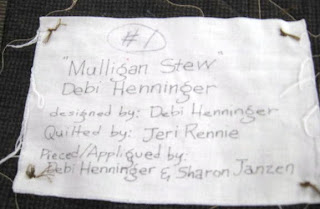 #1
"Mulligan Stew"
Debi Henninger
designed by: Debi Henninger
Quilted by: Jeri Rennie
Pieced/Appliqued by:
Debi Henninger & Sharon Janzen